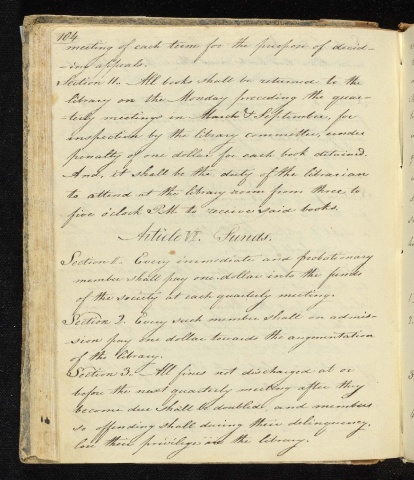 104
meeting of each term for the purpose of decid-
-ing appeals.
Section 11. All books shall be returned to the
library on the Monday preceding the quar-
-terly meetings in March & September, for
inspection by the library committee, under
penalty of one dollar for each book detained.
And it shall be the duty of the librarian
to attend at the library room from three to
five o'clock P.M. to receive said books.
Article VI. Funds.
Section 1. Every immediate and probationary
member shall pay one dollar into the funds
of the society at each quarterly meeting.
Section 2. Every such member shall on admis-
sion pay one dollar towards the augmentation
of the library.
Section 3. All fines not discharged at or
before the next quarterly meeting after they
become due shall be doubled, and members
so offending shall during their delinquency,
lose their privilege in the library.